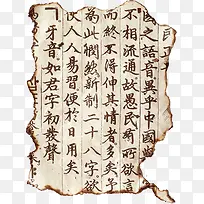 之語音異乎中國
不相流通故愚民有所欲言
而終不得伸其情者多矣予
為此憫然新制二十八字欲
使人人易習便於日用矣
ㄱ牙音如君字初發聲